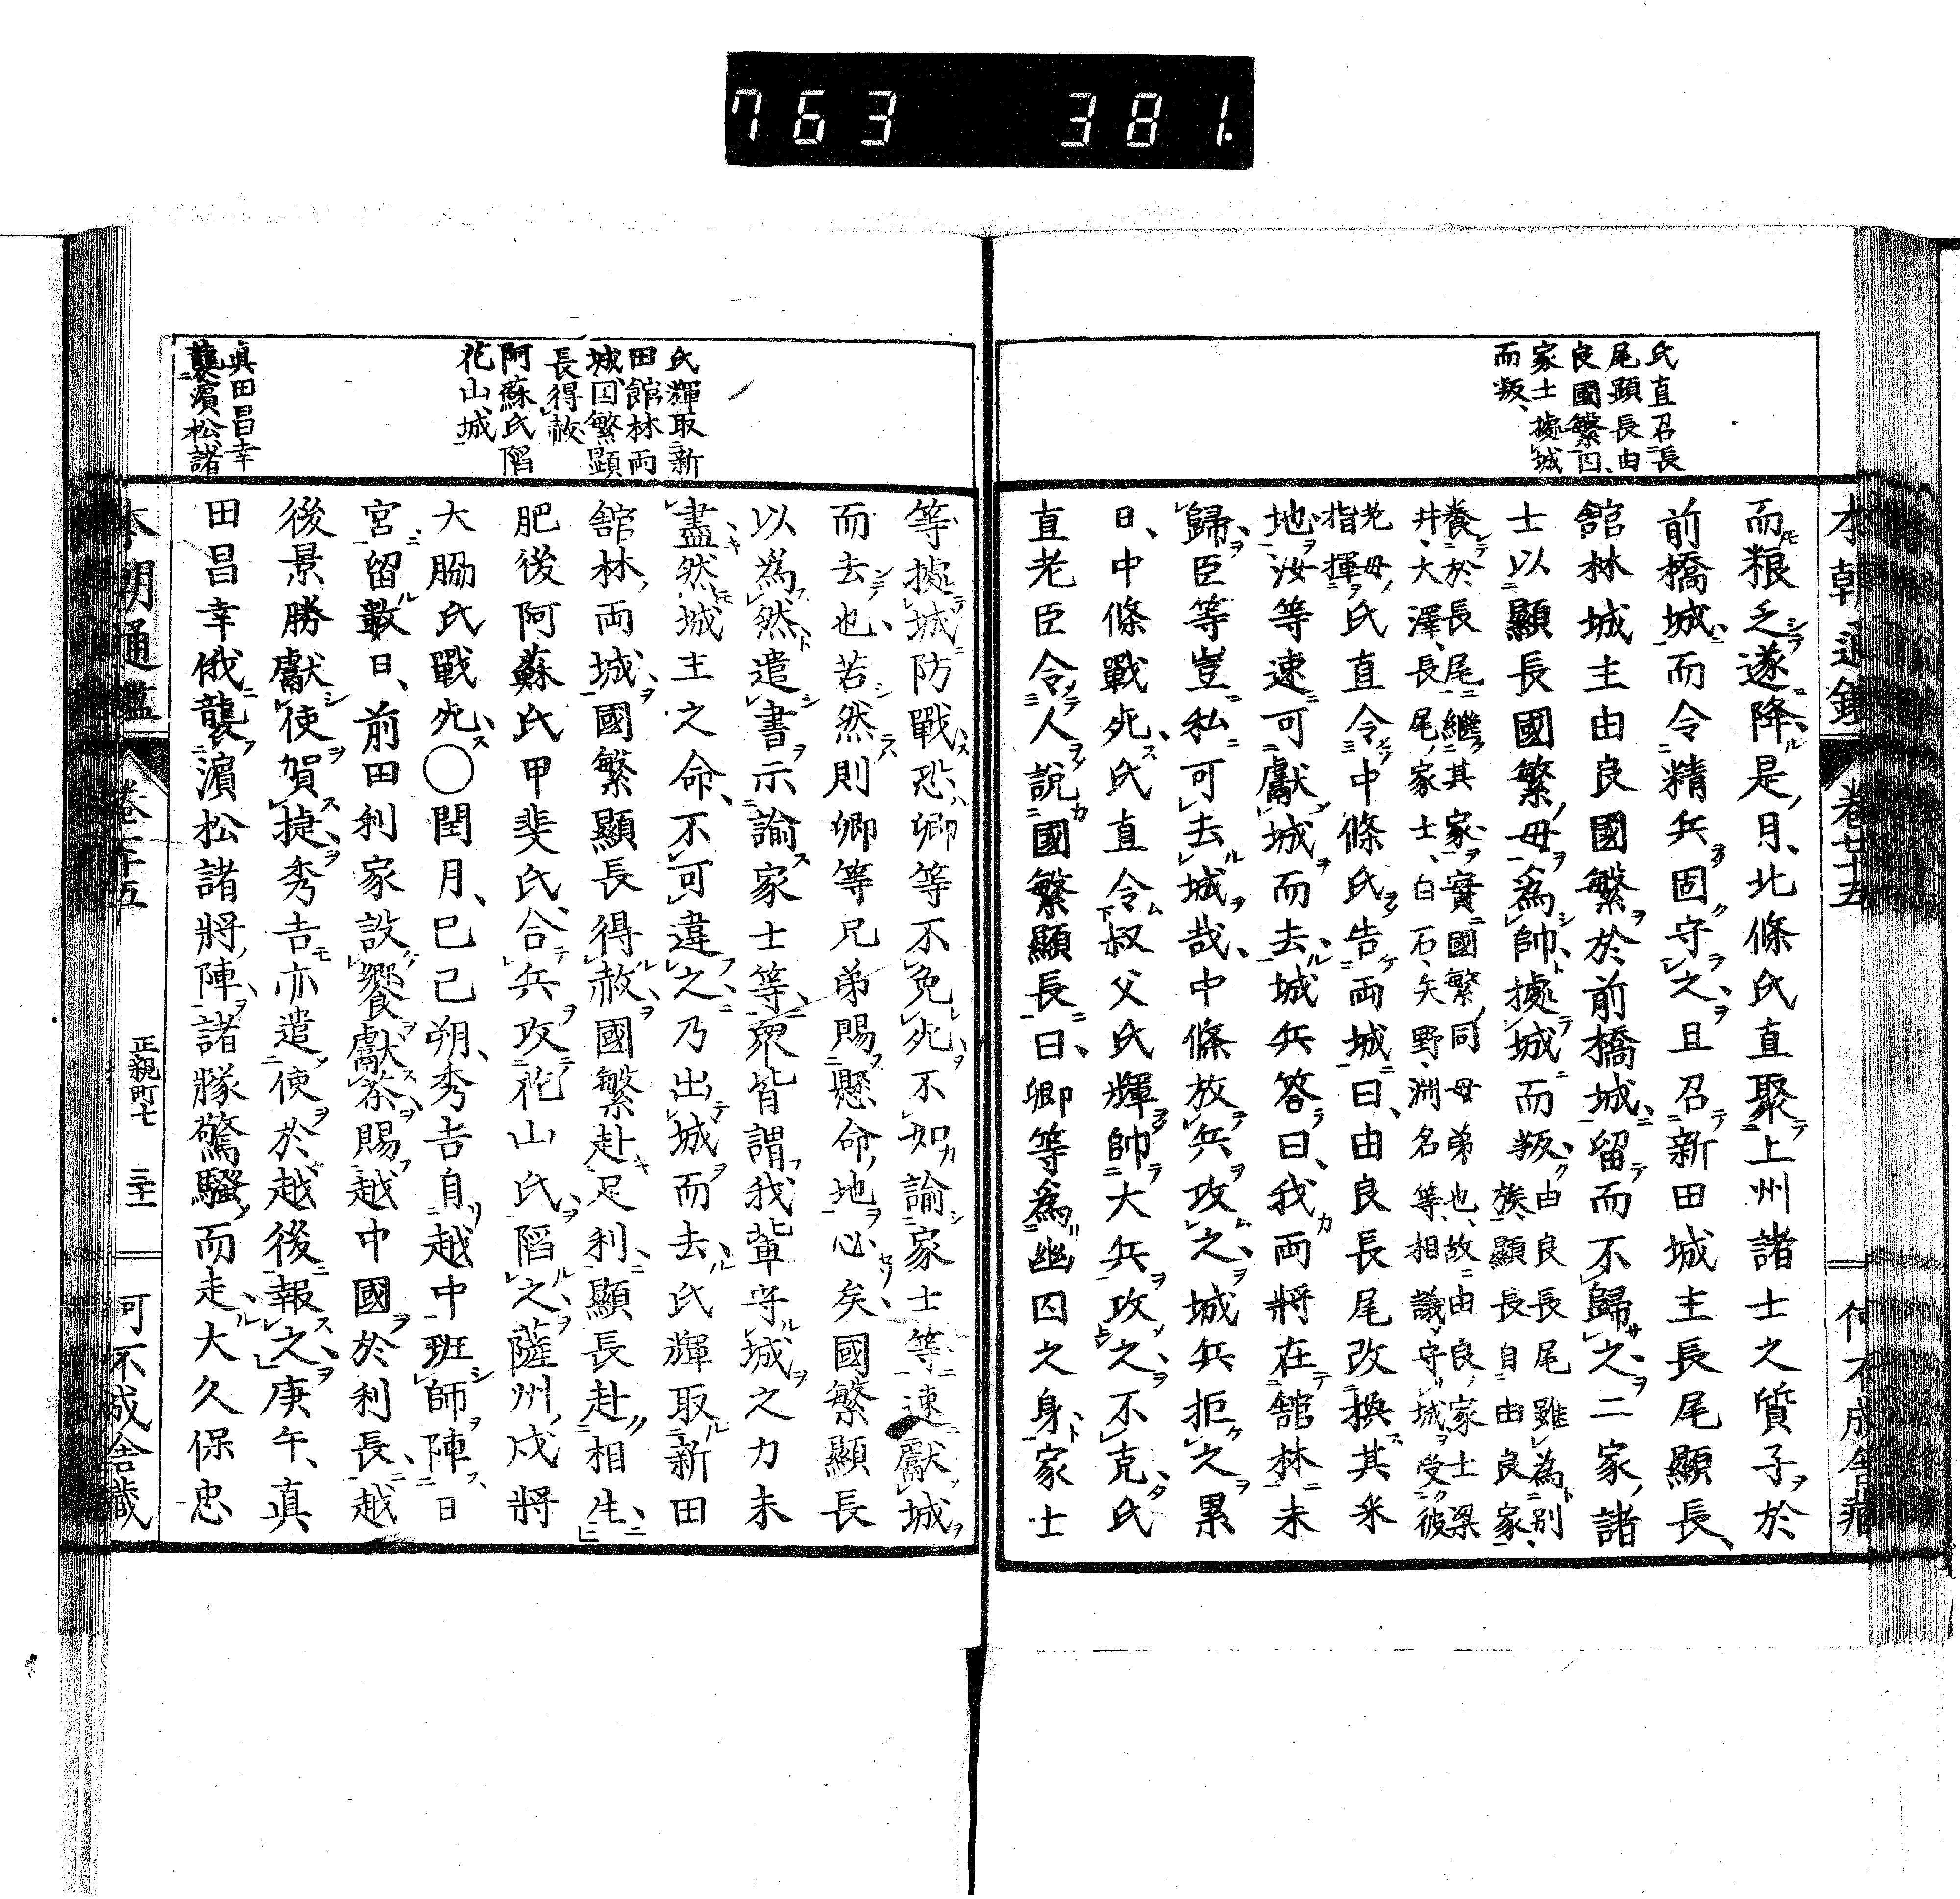 763 381.
氏直召長
尾顕長由
良國繁囚
家士據城
而叛
本朝通鑑 卷廿五
而粮乏遂降是月北條氏直聚上州諸士之質子於
前橋城而令精兵固守之且召新田城主長尾顯長
舘林城主由良國繁於前橋城留而不歸之二家諸
士以顯長國繁母為帥據城而叛由良長尾雖為別
族顯長自由良家
養於長尾繼其家實國繁同母弟也故由良家士梁
井大澤長尾家士白石矢野淵名等相議守城受彼
老母
指揮氏直令中條氏告両城曰由良長尾改換其釆
地汝等速可獻城而去城兵答曰我両將在舘林未
歸臣等豈私可去城哉中條放兵攻之城兵拒之累
日中條戰死氏直令叔父氏輝帥大兵攻之不克氏
直老臣令人說國繁顯長曰卿等為幽囚之身家士
氏輝取新
田舘林両
城囚繁顕
長得赦
阿蘇氏陷
花山城
真田昌幸
襲濵松諸
等據城防戰恐卿等不免死不如諭家士等速獻城
而去也若然則卿等兄弟賜懸命地必矣國繁顯長
以為然遣書示諭家士等衆皆謂我輩守城之力未
盡然城主之命不可違之乃出城而去氏輝取新田
舘林両城國繁顯長得赦國繁赴足利顯長赴相生
肥後阿蘇氏甲斐氏合兵攻花山氏陷之薩州戍將
大脇氏戰死〇閏月己巳朔秀吉自越中班師陣日
宮留數日前田利家設饗獻茶賜越中國於利長越
後景勝獻使賀捷秀吉亦遣使於越後報之庚午真
田昌幸俄襲濵松諸將陣諸隊驚騒而走大久保忠
本朝通鑑 卷二十五 正親町七 三十一 何不成舎蔵